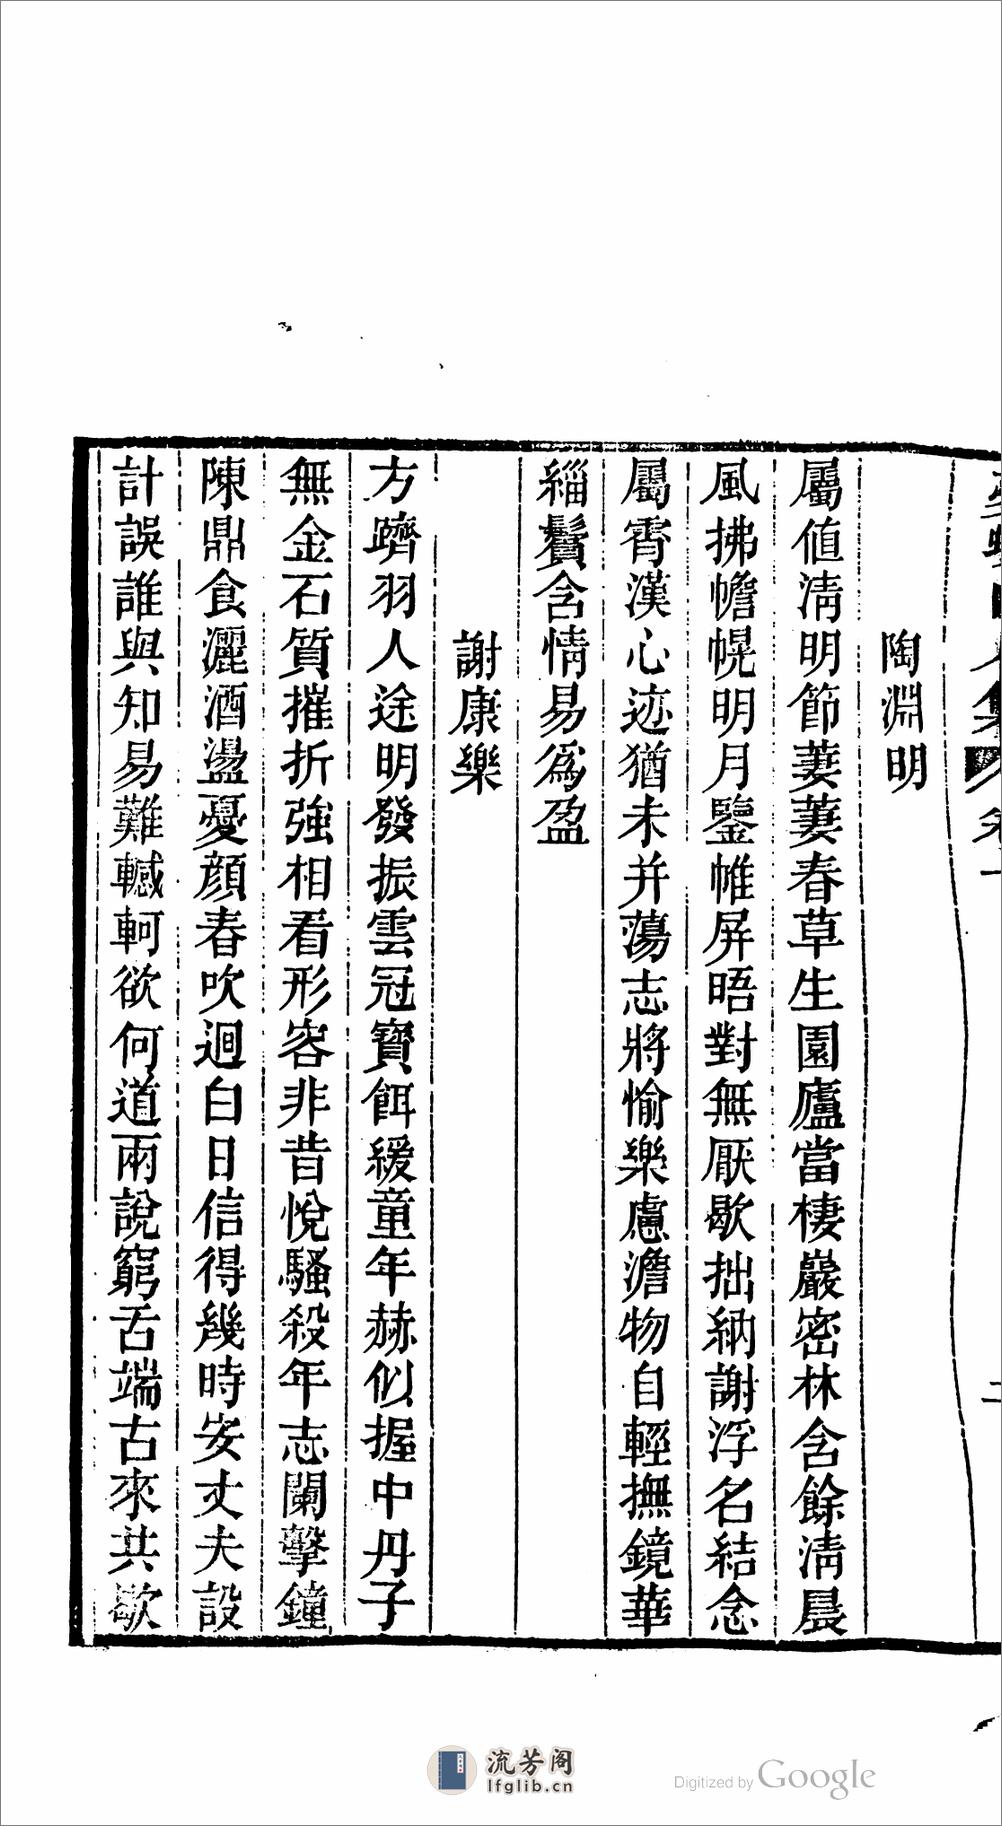 陶淵明
屬值淸明節萋萋春草生園廬當棲巖密林含餘淸晨
風拂幨幌明月鑒帷屏晤對無厭歇拙納謝浮名結念
屬霄漢心迹猶未并蕩志將愉樂慮澹物自輕撫鏡華
緇鬢含情易爲盈
謝康樂
方躋羽人途明發振雲冠寶餌緩童年赫似握中丹子
無金石質摧折強相看形容非昔悅騷殺年志闌擊鐘
陳鼎食灑酒盪憂顔春吹迴白日信得幾時安丈夫設
計誤誰與知易難轗軻欲何道兩說窮舌端古來共歇
流芳阁
lfglib.cn
Digitized by Google